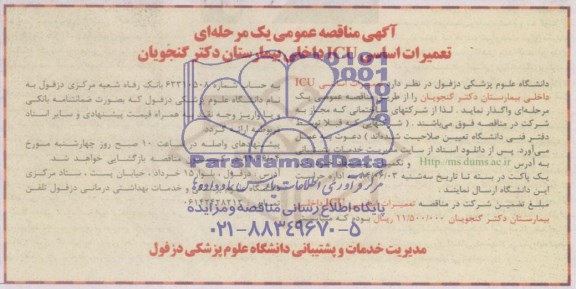 آگهی مناقصه عمومی یک مرحله‌ای
تعمیرات اساسی ICU داخلی بیمارستان دکتر گنجویان
دانشگاه علوم پزشکی دزفول در نظر دارد اساسی ICU
داخلی بیمارستان دکتر گنجویان را از طریق مناقصه عمومی یک
مرحله‌ای واگذار نماید. لذا از شرکتهای که مجاز به
شرکت در مناقصه فوق می‌باشند. ( قبلا توسط
دفتر فنی دانشگاه تعیین صلاحیت شده‌اند) دعوت بعمل
می‌آورد. پس از دانلود اسناد از سایت مدیریت خدمات
به آدرس Http://ms.dums.ac.ir و
یک پاکت در بسته تا تاریخ سه‌شنبه اداره حراست
این دانشگاه ارسال نمایند.
مبلغ تضمین شرکت در مناقصه تعمیرات ICU داخلی
بیمارستان دکتر گنجویان ۱۱/۵۰۰/۰۰۰ ریال بوده که
به حساب شماره بانک رفاه شعبه مرکزی دزفول به
نام دانشگاه علوم پزشکی دزفول که بصورت ضمانتنامه بانکی
و یا واریز وجه همراه قیمت پیشنهادی و سایر اسناد
ارائه گردد.
پیشنهادهای واصله در ساعت ۱۰ صبح روز چهارشنبه مورخ
مناقصه بازگشایی خواهد شد.
آدرس: دزفول، بلوار ۱۵ خرداد، خیابان پست، ستاد مرکزی
و خدمات بهداشتی درمانی دزفول تلفن
مدیریت خدمات و پشتیبانی دانشگاه علوم پزشکی دزفول
ParsNamadData
مرکز فرآوری اطلاعات پارس نماد داده‌ها
پایگاه اطلاع رسانی مناقصه و مزایده
۰۲۱-۸۸۳۴۹۶۷۰-۵